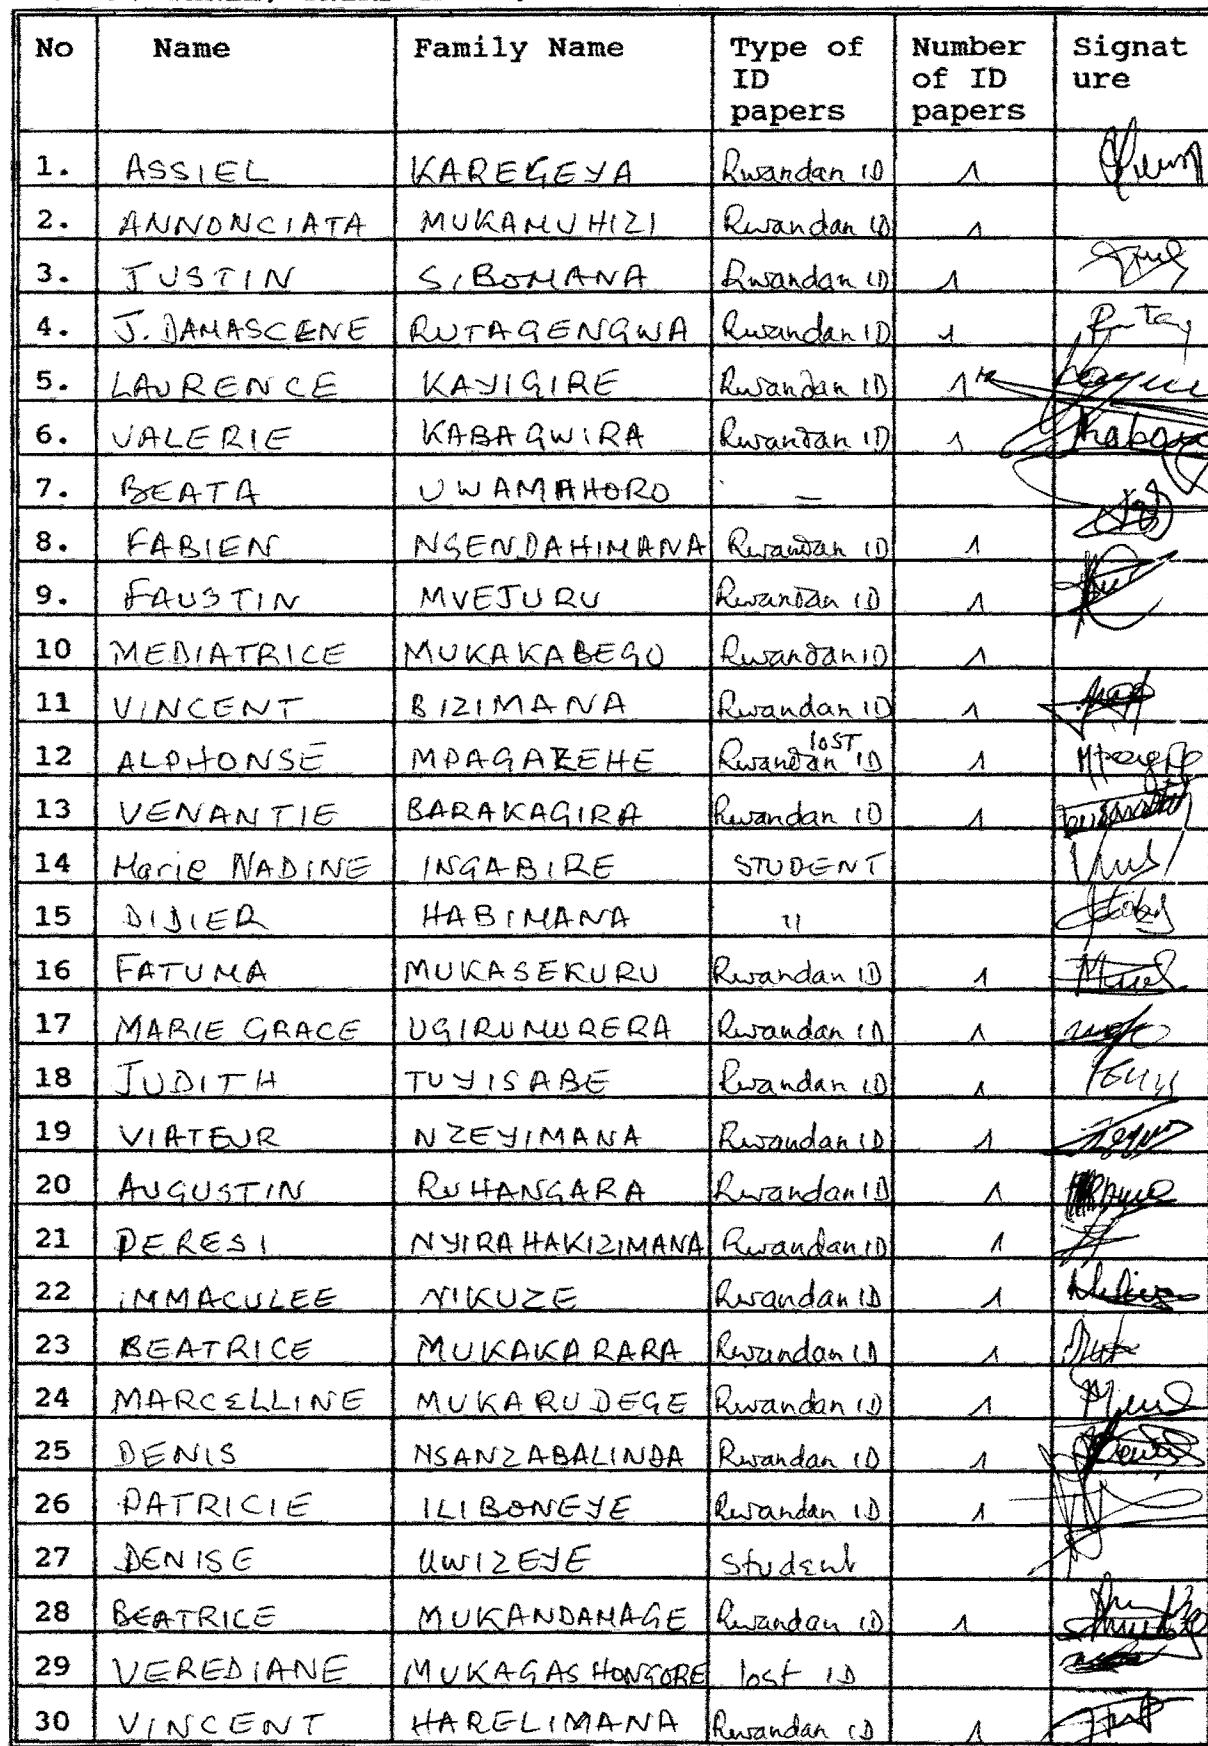 No Name Family Name Type of ID papers Number of ID papers Signat ure
1. ASSIEL KAREGEYA Rwandan ID 1
2. ANNONCIATA MUKAMUHIZI Rwandan ID 1
3. JUSTIN SIBOMANA Rwandan ID 1
4. J. DAMASCENE RUTAGENGWA Rwandan ID 1
5. LAURENCE KAYIGIRE Rwandan ID 1
6. VALERIE KABAGWIRA Rwandan ID 1
7. BEATA UWAMAHORO —
8. FABIEN NGENDAHIMANA Rwandan ID 1
9. FAUSTIN MVEJURU Rwandan ID 1
10 MEDIATRICE MUKAKABEGO Rwandan ID 1
11 VINCENT BIZIMANA Rwandan ID 1
12 ALPHONSE MPAGAZEHE Rwandan lost ID 1
13 VENANTIE BARAKAGIRA Rwandan ID 1
14 Marie NADINE INGABIRE STUDENT
15 DIDIER HABIMANA "
16 FATUMA MUKASEKURU Rwandan ID 1
17 MARIE GRACE UGIRUMURERA Rwandan ID 1
18 JUDITH TUYISABE Rwandan ID 1
19 VIATEUR NZEYIMANA Rwandan ID 1
20 AUGUSTIN RUHANGARA Rwandan ID 1
21 DERESI NYIRAHAKIZIMANA Rwandan ID 1
22 IMMACULEE NIKUZE Rwandan ID 1
23 BEATRICE MUKAKARARA Rwandan ID 1
24 MARCELLINE MUKARUDEGE Rwandan ID 1
25 DENIS NSANZABALINDA Rwandan ID 1
26 PATRICIE ILIBONEYE Rwandan ID 1
27 DENISE UWIZEYE Student
28 BEATRICE MUKANDAMAGE Rwandan ID 1
29 VEREDIANE MUKAGASHONGORE lost ID
30 VINCENT HARELIMANA Rwandan ID 1